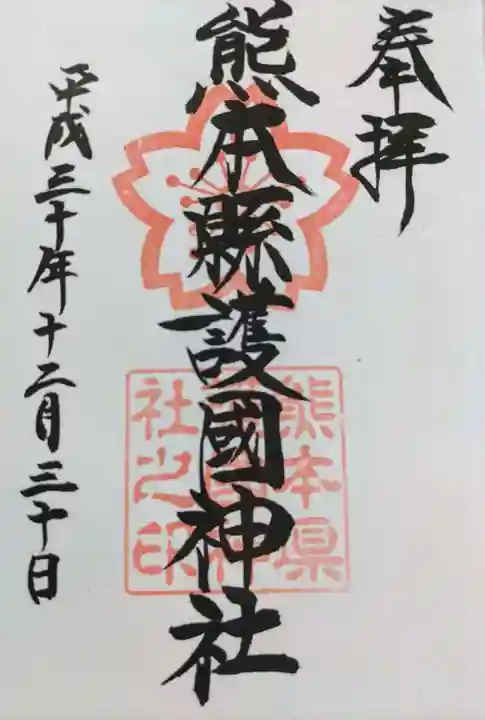 奉拝
熊本縣護國神社
熊本県
護国神
社之印
平成三十年十二月三十日